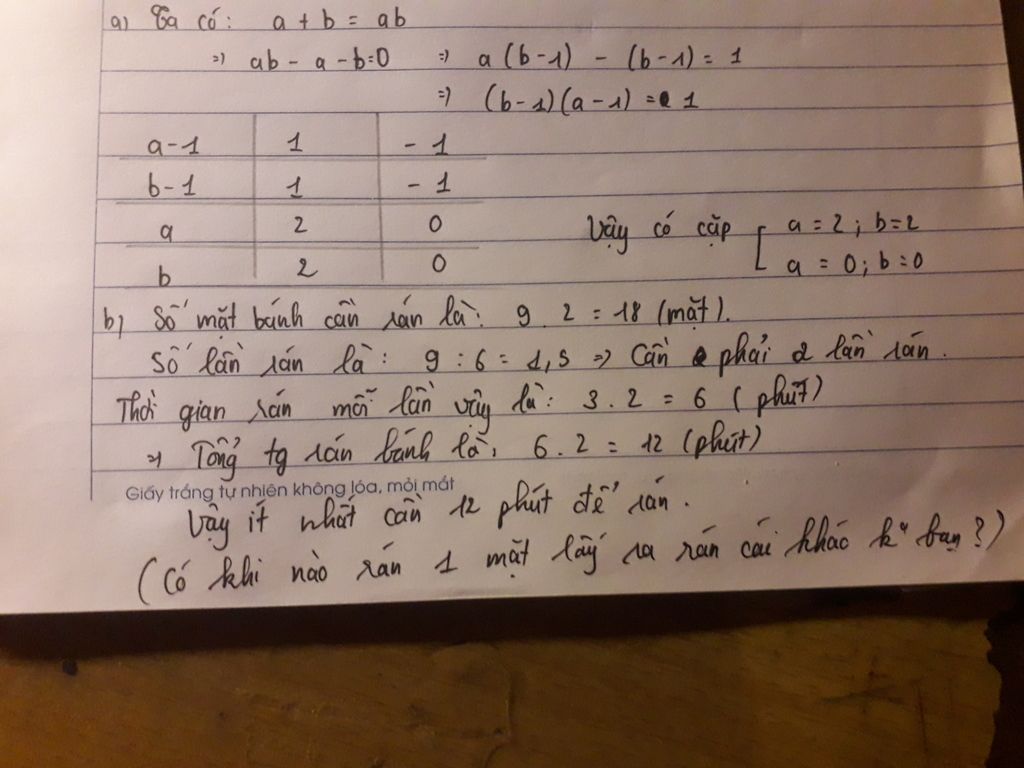 a) Ta có: a + b = ab
=) ab - a - b=0 =) a (b-1) - (b-1) = 1
=) (b-1)(a-1) = 1
a-1 1 -1
b-1 1 -1
a 2 0
b 2 0
Vậy có cặp [ a = 2; b=2
a = 0; b=0
b) Số mặt bánh cần rán là: 9 . 2 = 18 (mặt).
Số lần rán là: 9 : 6 = 1,5 => Cần phải 2 lần rán.
Thời gian rán mỗi lần vậy là: 3 . 2 = 6 (phút)
=) Tổng tg rán bánh là: 6 . 2 = 12 (phút)
Giấy trắng tự nhiên không lóa, mỏi mắt
Vậy ít nhất cần 12 phút để rán.
(Có khi nào rán 1 mặt lấy ra rán cái khác k bạn?)